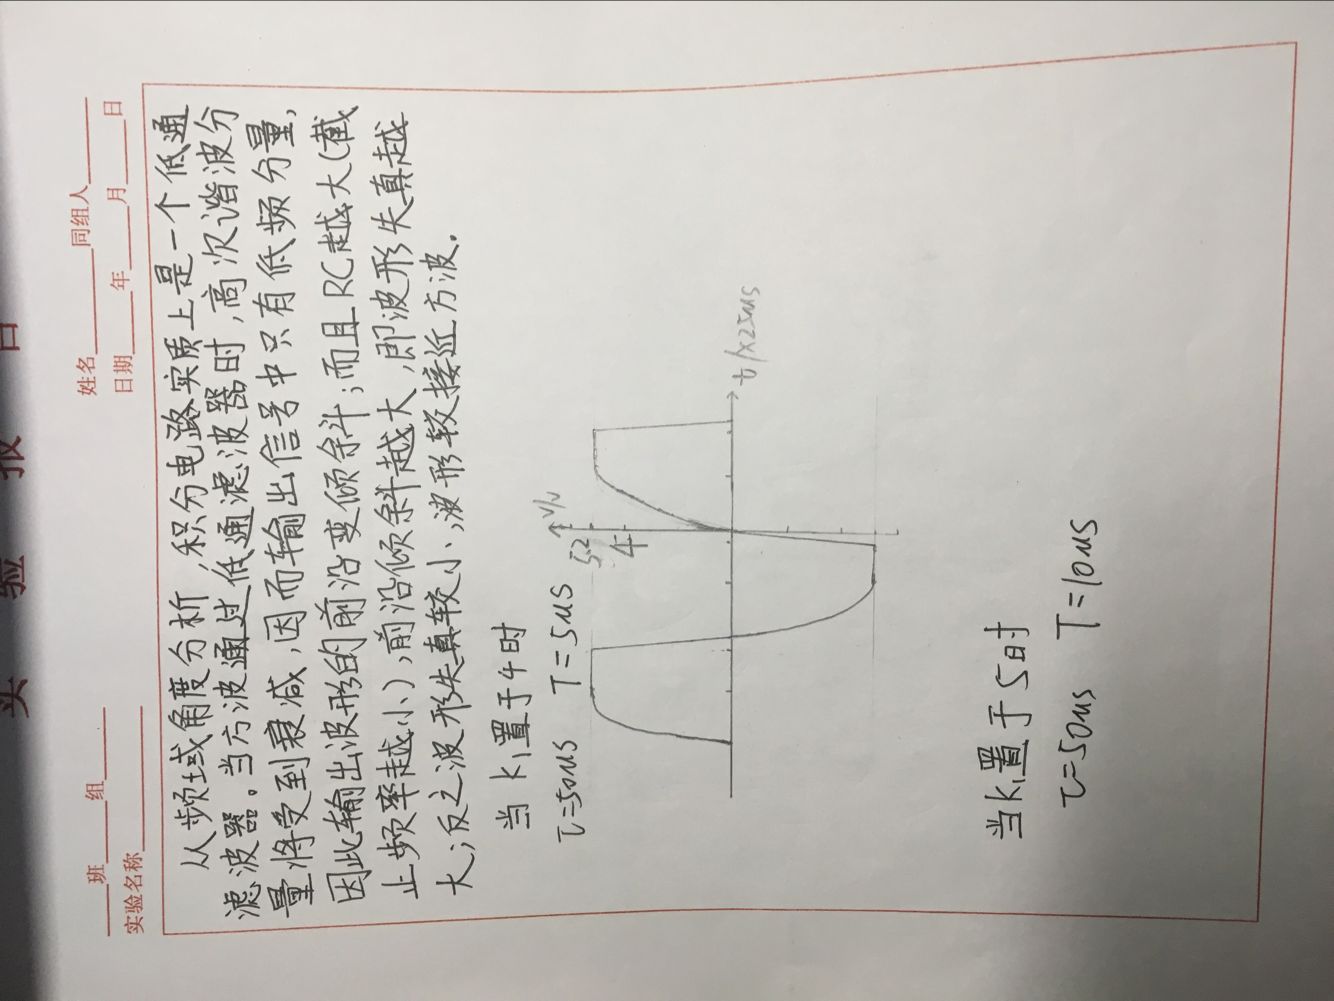 实验报告
班 组
姓名 同组人
实验名称
日期 年 月 日
从频域角度分析,积分电路实质上是一个低通
滤波器。当方波通过低通滤波器时,高次谐波分
量将受到衰减,因而输出信号中只有低频分量,
因此输出波形的前沿变倾斜;而且RC越大(截
止频率越小),前沿倾斜越大,即波形失真越
大;反之波形失真较小,波形较接近方波.
当 K₁置于4时
τ=50μs T=5μs
v/v
5.2
4
t/×25μs
当K₁置于5时
τ=50μs T=10μs